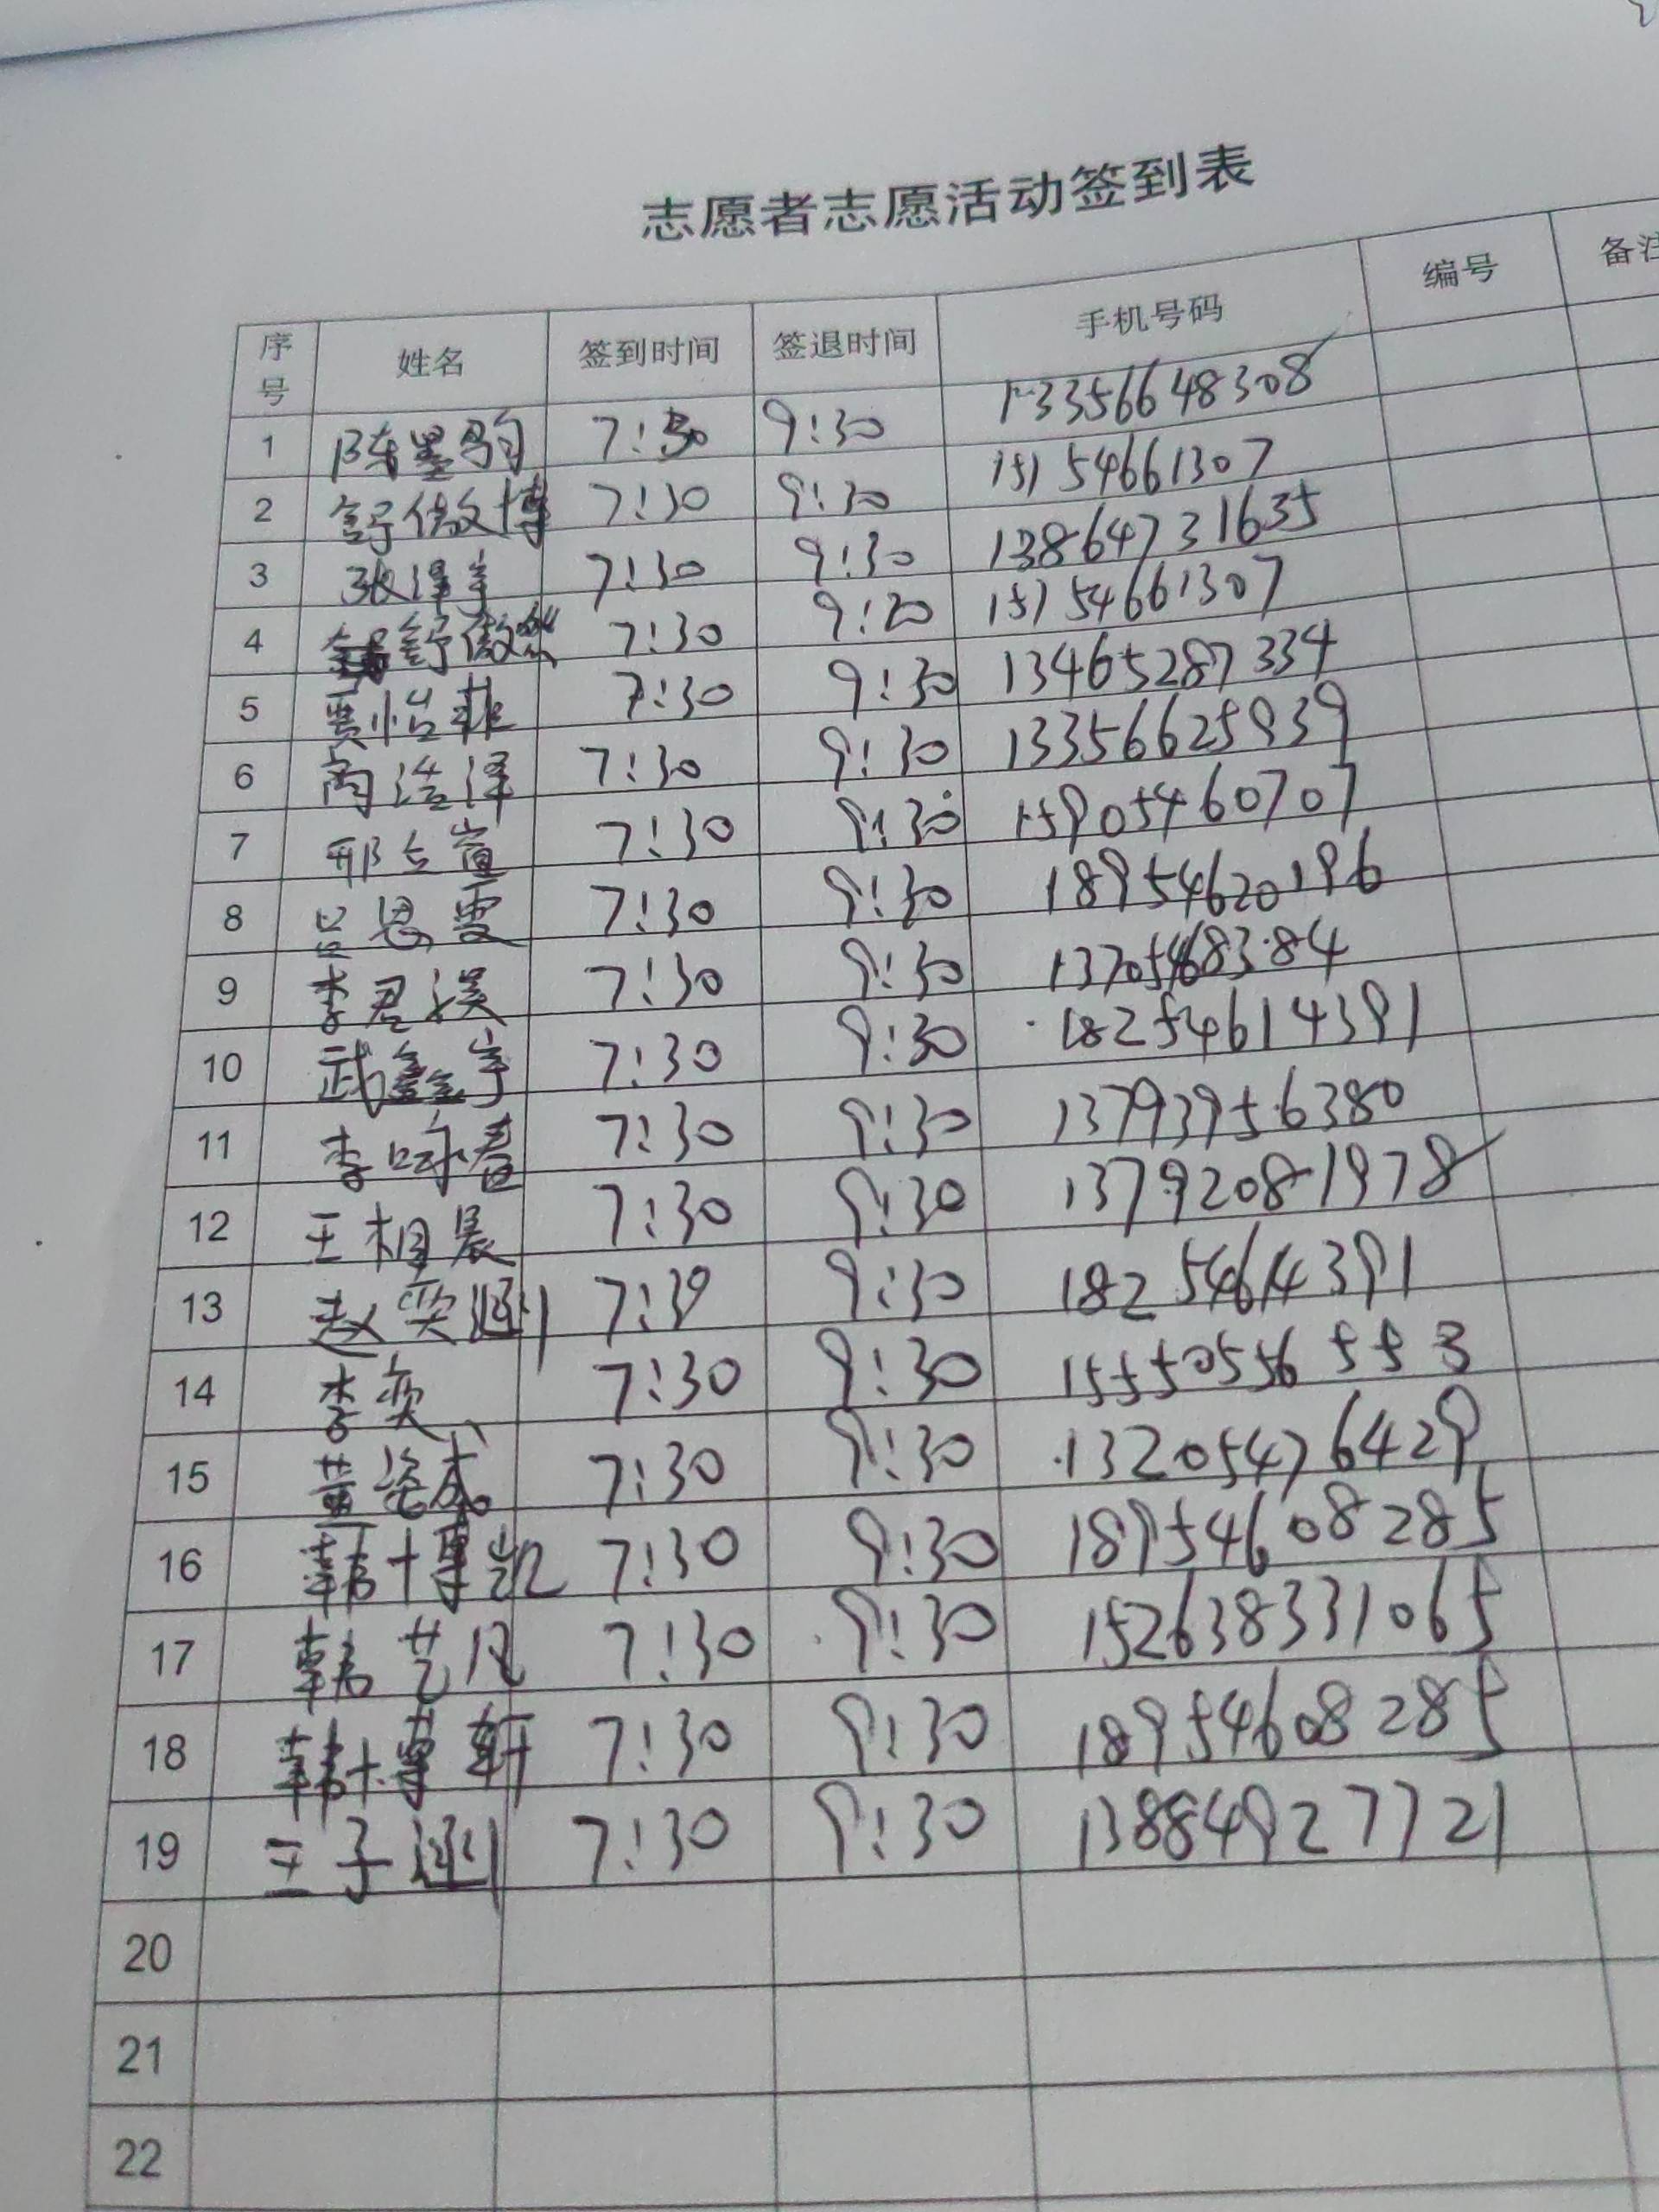 志愿者志愿活动签到表
序号 姓名 签到时间 签退时间 手机号码 编号 备注
1 陈墨驹 7:30 9:30 13356648308
2 舒傲博 7:30 9:30 15154661307
3 张泽宇 7:30 9:30 13864731635
4 舒傲然 7:30 9:20 15154661307
5 贾怡菲 7:30 9:30 13465287334
6 商浩泽 7:30 9:30 13356625939
7 邢占宣 7:30 9:30 15905460707
8 吕恩雯 7:30 9:30 18954620196
9 李君 7:30 9:30 13705468384
10 武鑫宇 7:30 9:30 18254614391
11 李咏春 7:30 9:30 13793956380
12 王相晨 7:30 9:30 13792081978
13 赵奕涵 7:30 9:30 18254614391
14 李奕 7:30 9:30 15550556553
15 黄姿杰 7:30 9:30 13205476429
16 韩博凯 7:30 9:30 18954608285
17 韩艺凡 7:30 9:30 152638331065
18 韩博轩 7:30 9:30 18954608285
19 王子涵 7:30 9:30 13884927721
20
21
22